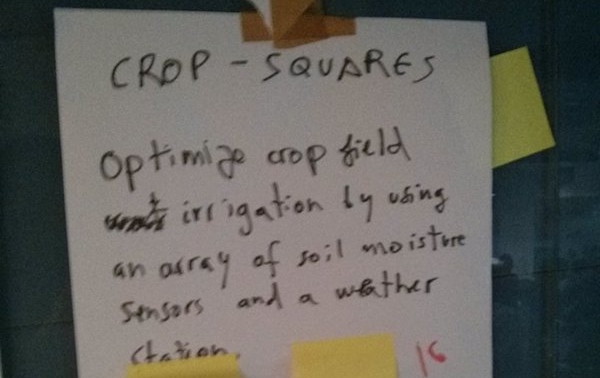 CROP - SQUARES
Optimize crop field
irrigation by using
an array of soil moisture
sensors and a weather
station.
16